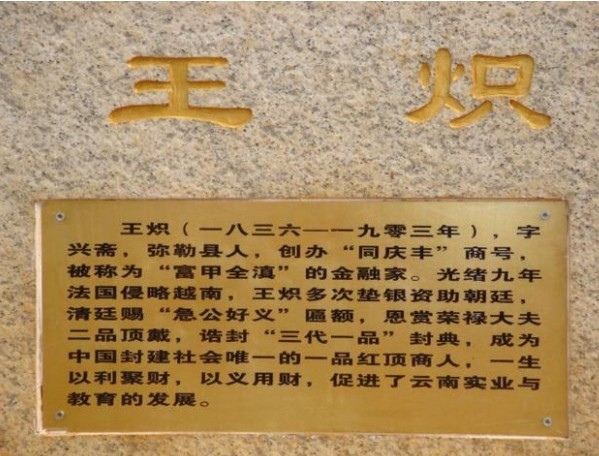 王 炽
王炽（一八三六—一九零三年），字
兴斋，弥勒县人，创办“同庆丰”商号，
被称为“富甲全滇”的金融家。光绪九年
法国侵略越南，王炽多次垫银资助朝廷，
清廷赐“急公好义”匾额，恩赏荣禄大夫
二品顶戴，诰封“三代一品”封典，成为
中国封建社会唯一的一品红顶商人，一生
以利聚财，以义用财，促进了云南实业与
教育的发展。